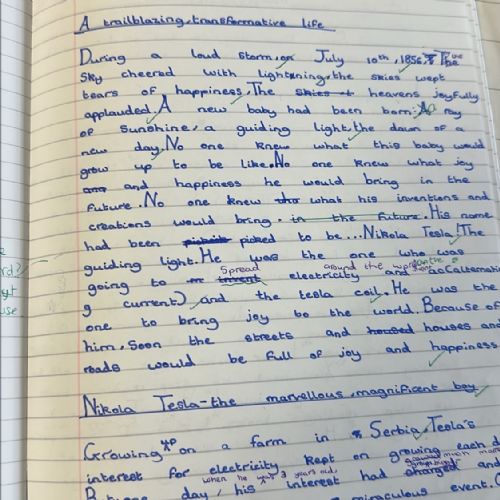 A trailblazing,transformative life
During a loud storm,on July 10th,1856, The
sky cheered with lightning,the skies wept
tears of happiness,The heavens joyfully
applauded.A new baby had been born:A ray
of sunshine,a guiding light,the dawn of a
new day.No one knew what this baby would
grow up to be like.No one knew what joy
and happiness he would bring in the
future.No one knew what his inventions and
creations would bring.in the future.His name
had been picked to be...Nikola Tesla!The
guiding light.He was the one who was
spread around the world
going to invent electricity and ac(alternatin
g current) and the tesla coil.He was the
one to bring joy to the world.Because of
him,soon the streets and housed houses and
roads would be full of joy and happiness
Nikola Tesla-the marvellous,magnificent boy
Growing up on a farm in Serbia,Tesla's
interest for electricity kept on growing each d
when he was 3 years old,
day, his interest had
miraculous event.